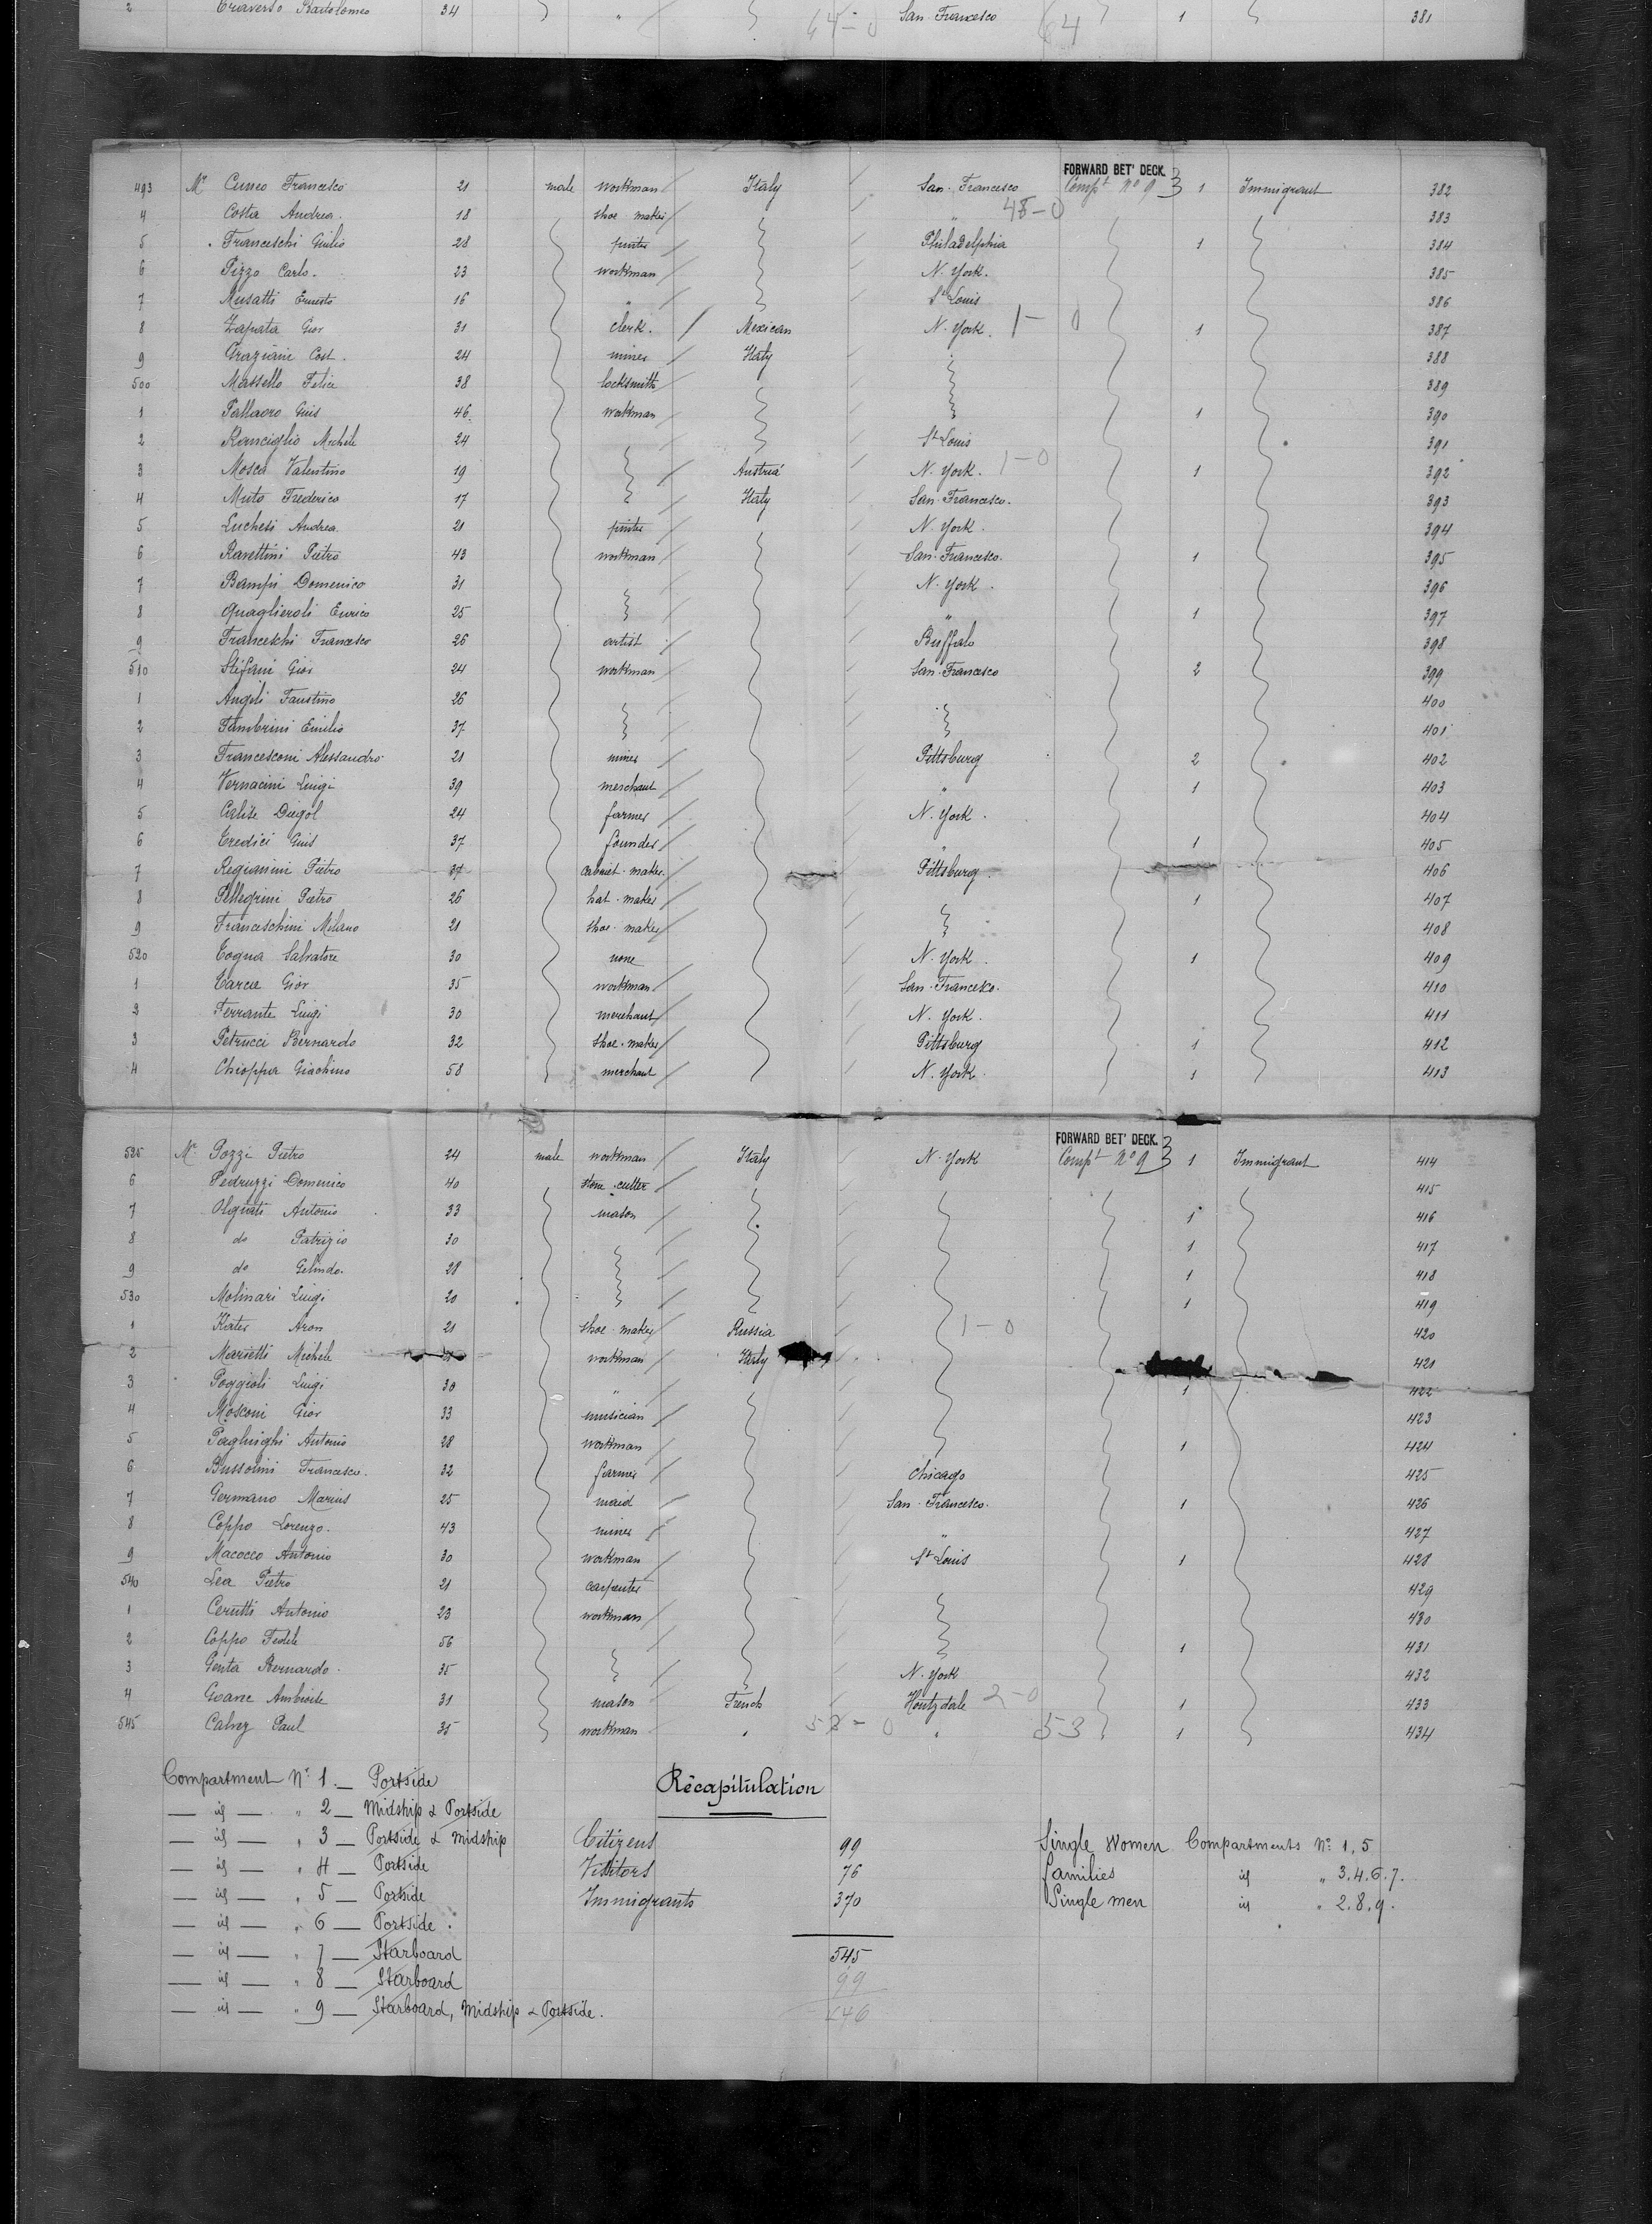 2 Traverso Bartolomeo 34 " 64-0 San Francesco 64 1 381
FORWARD BET' DECK.
493 Mr Cuneo Francesco 21 male workman Italy San Francesco Compt No 9 3 1 Immigrant 382
4 Costa Andrea. 18 shoe maker " 48-0 383
5 Franceschi Giulio 28 Philadelphia 1 384
6 Pizzo Carlo. 23 workman N. York. 385
7 Musatti Ernesto 16 " St Louis 386
8 Zapata Giov 31 clerk. Mexican N. York. 1-0 1 387
9 Graziani Cost. 24 miner Italy 388
500 Massello Felice 38 locksmith 389
1 Pallaoro Gius 46 workman 1 390
2 Ranciglio Michele 24 St Louis 391
3 Mosca Valentino 19 Austria N. York. 1-0 1 392
4 Muto Frederico 17 Italy San Francesco. 393
5 Luchesi Andrea 21 N. York. 394
6 Ravettini Pietro 43 workman San Francesco. 1 395
7 Bampi Domenico 31 N. York. 396
8 Quaglieroli Enrico 25 " 1 397
9 Franceschi Francesco 26 artist Buffalo 398
510 Stefani Giov 24 workman San Francesco 2 399
1 Angeli Faustino 26 400
2 Tambrini Emilio 37 401
3 Francesconi Alessandro 21 miner Pittsburg 2 402
4 Vernacini Luigi 39 merchant " 1 403
5 24 farmer N. York. 404
6 Tredici Gius 37 founder " 1 405
7 Regianini Pietro 37 cabinet-maker Pittsburg. 406
8 Pellegrini Pietro 26 hat-maker 1 407
9 Franceschini Milano 21 shoe-maker 408
520 Togna Salvatore 30 none N. York. 1 409
1 Giov 35 workman San Francesco. 410
2 Ferrante Luigi 30 merchant N. York. 411
3 Petrucci Bernardo 32 shoe-maker Pittsburg 1 412
4 Chioppa Giachino 58 merchant N. York. 1 413
FORWARD BET' DECK.
525 Mr Pozzi Pietro 24 male workman Italy N. York Compt No 9 3 1 Immigrant 414
6 Pedruzzi Domenico 40 stone-cutter 415
7 Olgiati Antonio 33 mason 1 416
8 do Patrizio 30 1 417
9 do Gelindo. 28 1 418
530 Molinari Luigi 20 1 419
1 Kater Aron 21 shoe-maker Russia 1-0 420
2 Marietti Michele workman Italy 421
3 Poggioli Luigi 30 " 1 422
4 Mosconi Giov 33 musician 423
5 Paghighi Antonio 28 workman 1 424
6 Bussolini Francesco. 32 farmer Chicago 425
7 Germano Marius 25 maid San Francesco. 1 426
8 Coppo Lorenzo. 43 miner " 427
9 Macocco Antonio 30 workman St Louis 1 428
540 Lea Pietro 21 carpenter 429
1 Cerutti Antonio 23 workman 430
2 Coppo Fedele 56 1 431
3 Genta Bernardo. 35 N. York 432
4 Ambroise 31 mason French Houtzdale 2-0 1 433
545 Calvez Paul 35 workman " 53-0 " 53 1 434
Compartment No 1 — Portside
Récapitulation
— id — " 2 — Midship & Portside
— id — " 3 — Portside & Midship Citizens 99 Single Women Compartments No 1,5
— id — " 4 — Portside Visitors 76 families id " 3.4.6.7.
— id — " 5 — Portside Immigrants 370 Single men id " 2.8.9.
— id — " 6 — Portside
— id — " 7 — Starboard 545
— id — " 8 — Starboard 99
— id — " 9 — Starboard, Midship & Portside. 446